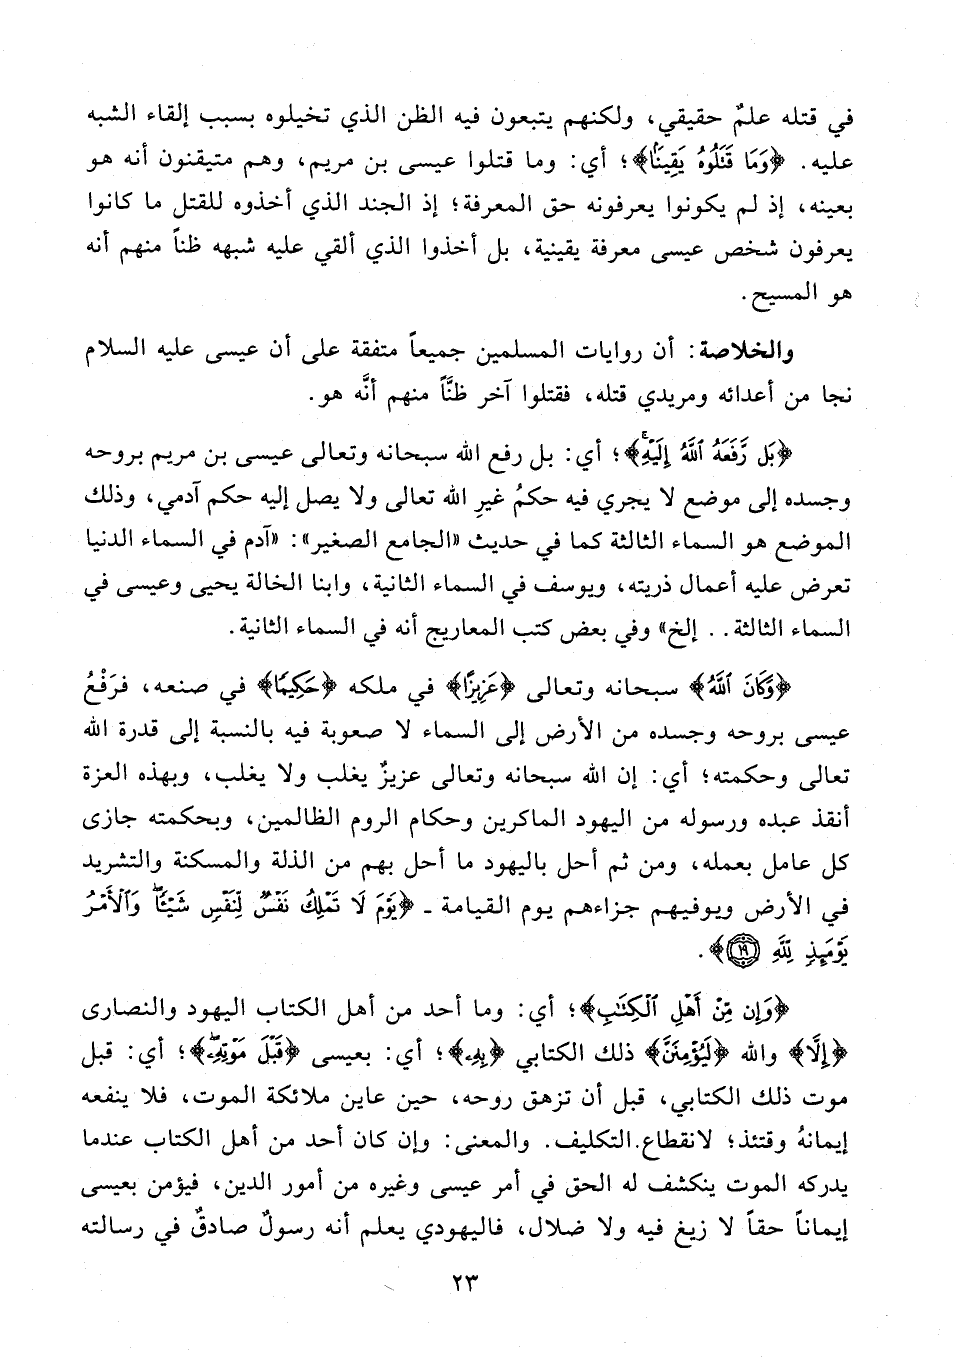 في قتله علمٌ حقيقي، ولكنهم يتبعون فيه الظن الذي تخيلوه بسبب إلقاء الشبه
عليه. ﴿وَمَا قَتَلُوهُ يَقِينًا﴾؛ أي: وما قتلوا عيسى بن مريم، وهم متيقنون أنه هو
بعينه، إذ لم يكونوا يعرفونه حق المعرفة؛ إذ الجند الذي أخذوه للقتل ما كانوا
يعرفون شخص عيسى معرفة يقينية، بل أخذوا الذي ألقي عليه شبهه ظناً منهم أنه
هو المسيح.
والخلاصة: أن روايات المسلمين جميعاً متفقة على أن عيسى عليه السلام
نجا من أعدائه ومريدي قتله، فقتلوا آخر ظنَّاً منهم أنَّه هو.
﴿بَل رَّفَعَهُ ٱللَّهُ إِلَيْهِ﴾؛ أي: بل رفع الله سبحانه وتعالى عيسى بن مريم بروحه
وجسده إلى موضع لا يجري فيه حكمُ غيرِ الله تعالى ولا يصل إليه حكم آدمي، وذلك
الموضع هو السماء الثالثة كما في حديث «الجامع الصغير»: «آدم في السماء الدنيا
تعرض عليه أعمال ذريته، ويوسف في السماء الثانية، وابنا الخالة يحيى وعيسى في
السماء الثالثة.. إلخ» وفي بعض كتب المعاريج أنه في السماء الثانية.
﴿وَكَانَ ٱللَّهُ﴾ سبحانه وتعالى ﴿عَزِيزًا﴾ في ملكه ﴿حَكِيمًا﴾ في صنعه، فرَفْعُ
عيسى بروحه وجسده من الأرض إلى السماء لا صعوبة فيه بالنسبة إلى قدرة الله
تعالى وحكمته؛ أي: إن الله سبحانه وتعالى عزيزٌ يغلب ولا يغلب، وبهذه العزة
أنقذ عبده ورسوله من اليهود الماكرين وحكام الروم الظالمين، وبحكمته جازى
كل عامل بعمله، ومن ثم أحل باليهود ما أحل بهم من الذلة والمسكنة والتشريد
في الأرض ويوفيهم جزاءهم يوم القيامة ـ ﴿يَوْمَ لَا تَمْلِكُ نَفْسٌ لِّنَفْسٍ شَيْئًا ۖ وَٱلْأَمْرُ
يَوْمَئِذٍ لِّلَّهِ ١٩﴾.
﴿وَإِن مِّنْ أَهْلِ ٱلْكِتَٰبِ﴾؛ أي: وما أحد من أهل الكتاب اليهود والنصارى
﴿إِلَّا﴾ والله ﴿لَيُؤْمِنَنَّ﴾ ذلك الكتابي ﴿بِهِۦ﴾؛ أي: بعيسى ﴿قَبْلَ مَوْتِهِۦ ۖ﴾؛ أي: قبل
موت ذلك الكتابي، قبل أن تزهق روحه، حين عاين ملائكة الموت، فلا ينفعه
إيمانهُ وقتئذ؛ لانقطاع التكليف. والمعنى: وإن كان أحد من أهل الكتاب عندما
يدركه الموت ينكشف له الحق في أمر عيسى وغيره من أمور الدين، فيؤمن بعيسى
إيماناً حقاً لا زيغ فيه ولا ضلال، فاليهودي يعلم أنه رسولٌ صادقٌ في رسالته
٢٣